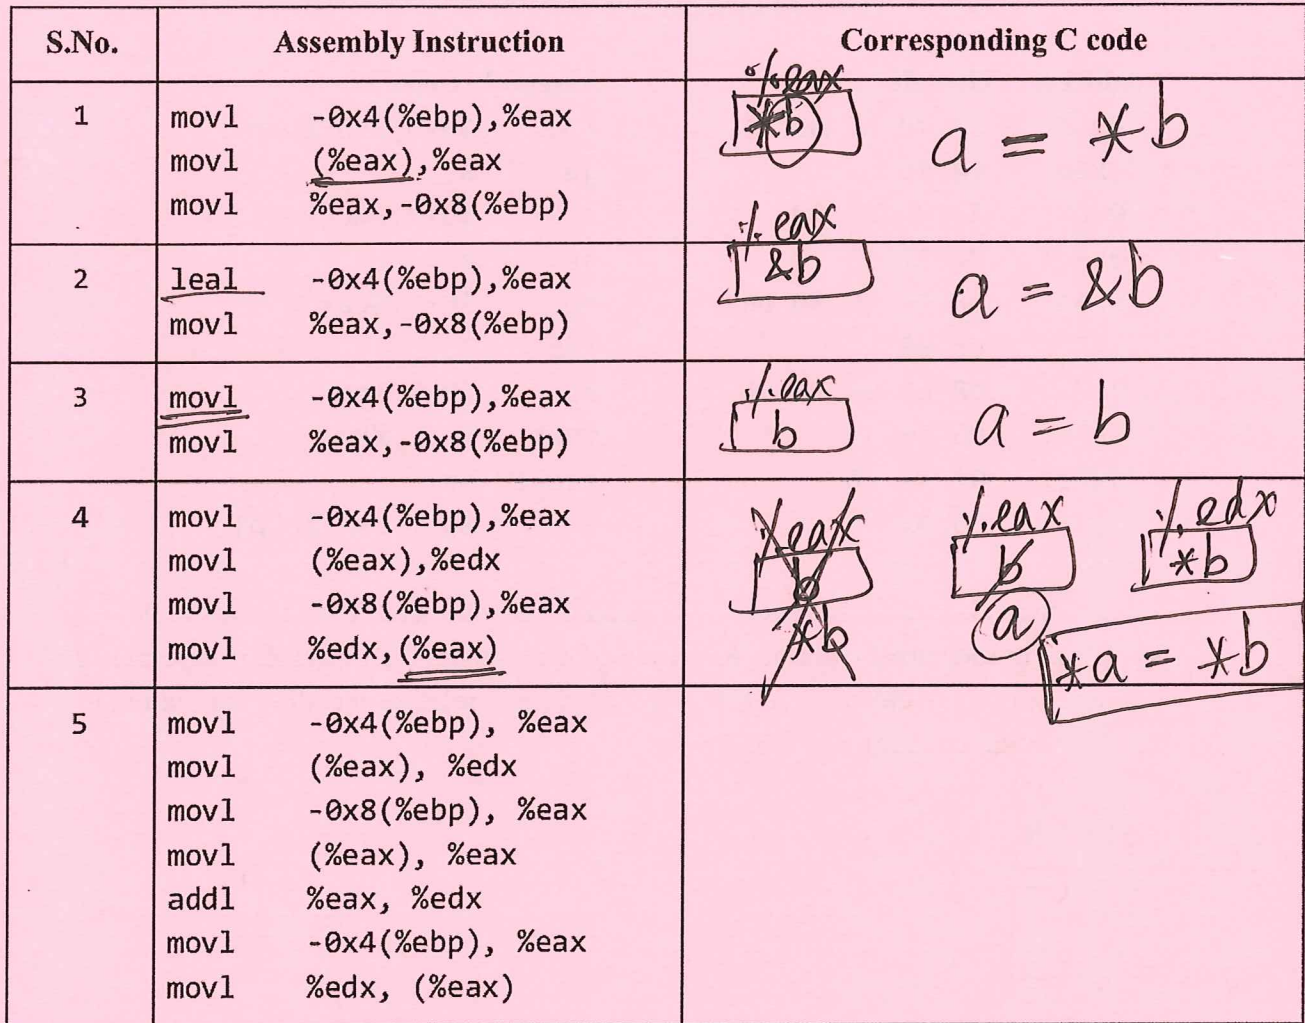 S.No. Assembly Instruction Corresponding C code
1
movl -0x4(%ebp),%eax
movl (%eax),%eax
movl %eax,-0x8(%ebp)
%eax
*b
a = *b
2
leal -0x4(%ebp),%eax
movl %eax,-0x8(%ebp)
%eax
&b
a = &b
3
movl -0x4(%ebp),%eax
movl %eax,-0x8(%ebp)
%eax
b
a = b
4
movl -0x4(%ebp),%eax
movl (%eax),%edx
movl -0x8(%ebp),%eax
movl %edx,(%eax)
%eax %eax %edx
b b *b
*b a
*a = *b
5
movl -0x4(%ebp), %eax
movl (%eax), %edx
movl -0x8(%ebp), %eax
movl (%eax), %eax
addl %eax, %edx
movl -0x4(%ebp), %eax
movl %edx, (%eax)